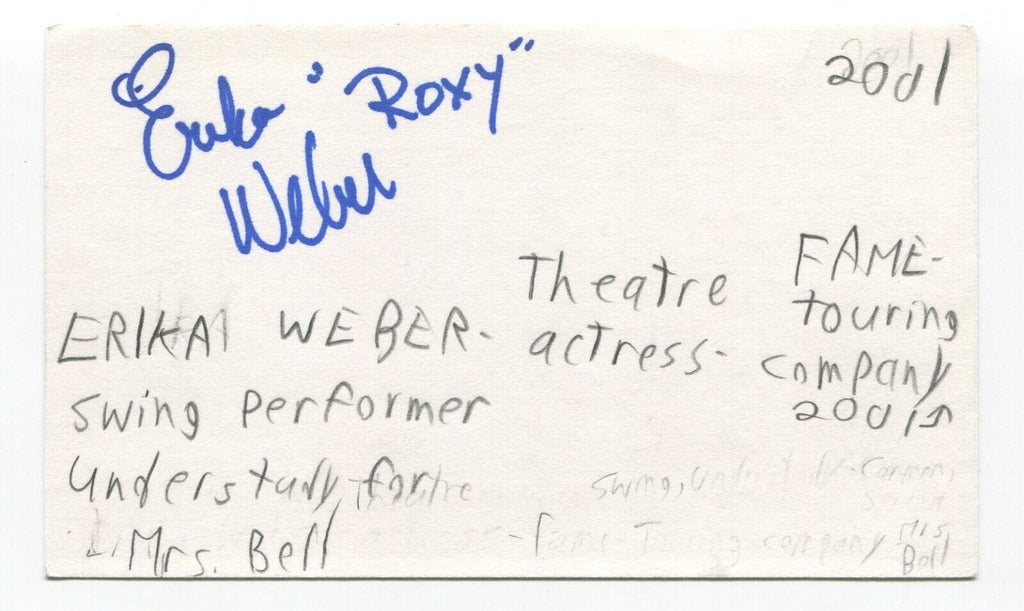 Erika "Roxy"
Weber
2001
ERIKA WEBER-
Theatre
actress-
FAME-
touring
company
2001
swing performer
Understudy for
Mrs. Bell
Theatre
swing, Carmen,
-Fame-Touring company Mrs.
Bell